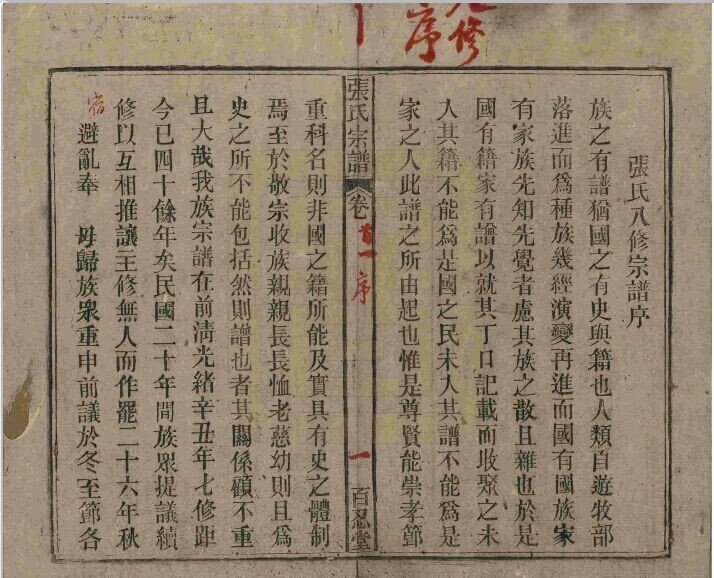 八修
序
張氏八修宗譜序
族之有譜猶國之有史與籍也人類自遊牧部
落進而為種族幾經演變再進而國有國族家
有家族先知先覺者慮其族之散且雜也於是
國有籍家有譜以就其丁口記載而收聚之未
入其籍不能為是國之民未入其譜不能為是
家之人此譜之所由起也惟是尊賢能崇孝節
張氏宗譜
卷首一序
一
百忍堂
重科名則非國之籍所能及實具有史之體制
焉至於敬宗收族親親長長恤老慈幼則且為
史之所不能包括然則譜也者其關係顧不重
且大哉我族宗譜在前清光緒辛丑年七修距
今已四十餘年矣民國二十年間族眾提議續
修以互相推讓主修無人而作罷二十六年秋
宿避亂奉 母歸族眾重申前議於冬至節各